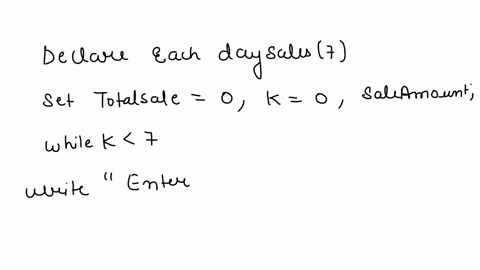 Declare Each daysales(7)
Set Totalsale = 0, K = 0, SaleAmount;
while K < 7
write " Enter